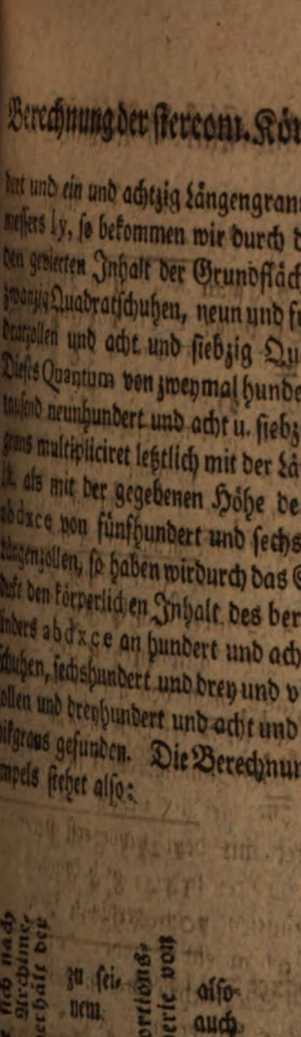 Berechnung der stereom. Kör
dert und ein und achtzig Längengran
messers ly, so bekommen wir durch d
den gevierten Inhalt der Grundfläch
zwanzig Quadratschuhen, neun und f
dratzollen und acht und siebzig Qu
Dieses Quantum von zweymal hunde
tausend neunhundert und acht u. siebz
grans multipliciret letztlich mit der Lä
ist, als mit der gegebenen Höhe de
abdxce von fünfhundert und sechs
Längenzollen, so haben wir durch das
dukt den körperlichen Inhalt des ber
linders abdxce an hundert und ach
schuhen, sechshundert und drey und v
zollen und dreyhundert und acht und
bikgrans gefunden. Die Berechnun
empels stehet also:
sich nach
Archime,
verhält der
zu sei-
nem
portions-
von
also
auch